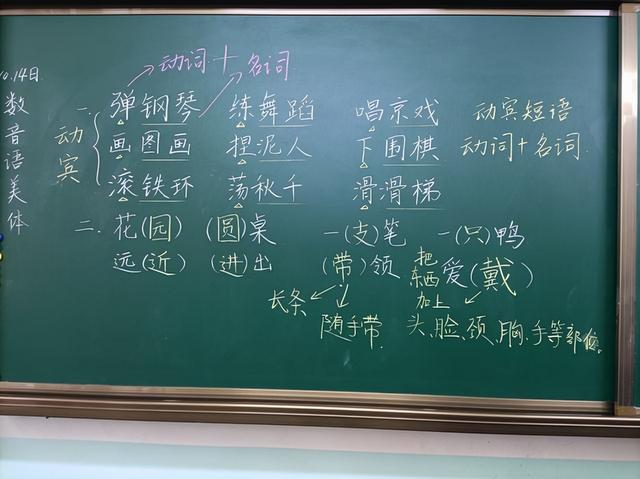 10.14日
数音语美体
动词+名词
一. 弹钢琴 练舞蹈 唱京戏 动宾短语
动宾 画图画 捏泥人 下围棋 动词+名词
滚铁环 荡秋千 滑滑梯
二. 花(园) (圆)桌 一(支)笔 一(只)鸭
远(近) (进)出 (带)领 爱(戴)
把东西加上
长条
随手带 头、脸、颈、胸、手等部位。